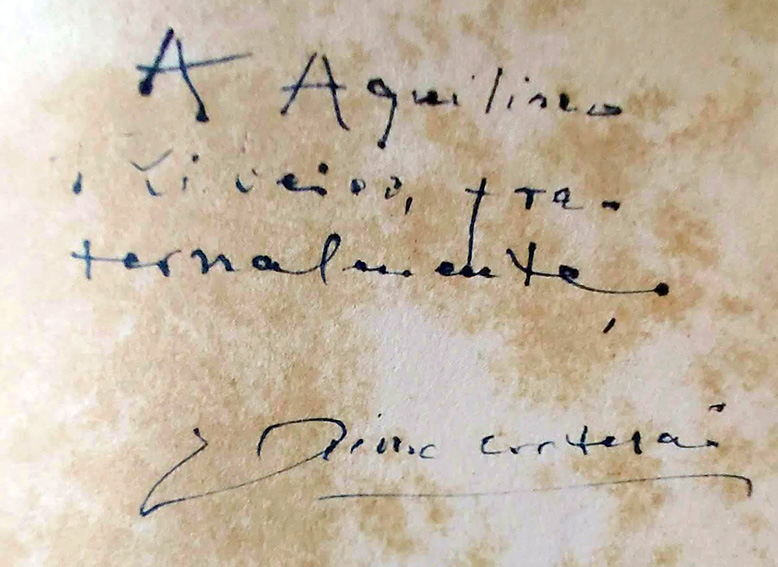 A Aquilino
Ribeiro, fra-
ternalmente,
Jaime Cortesão